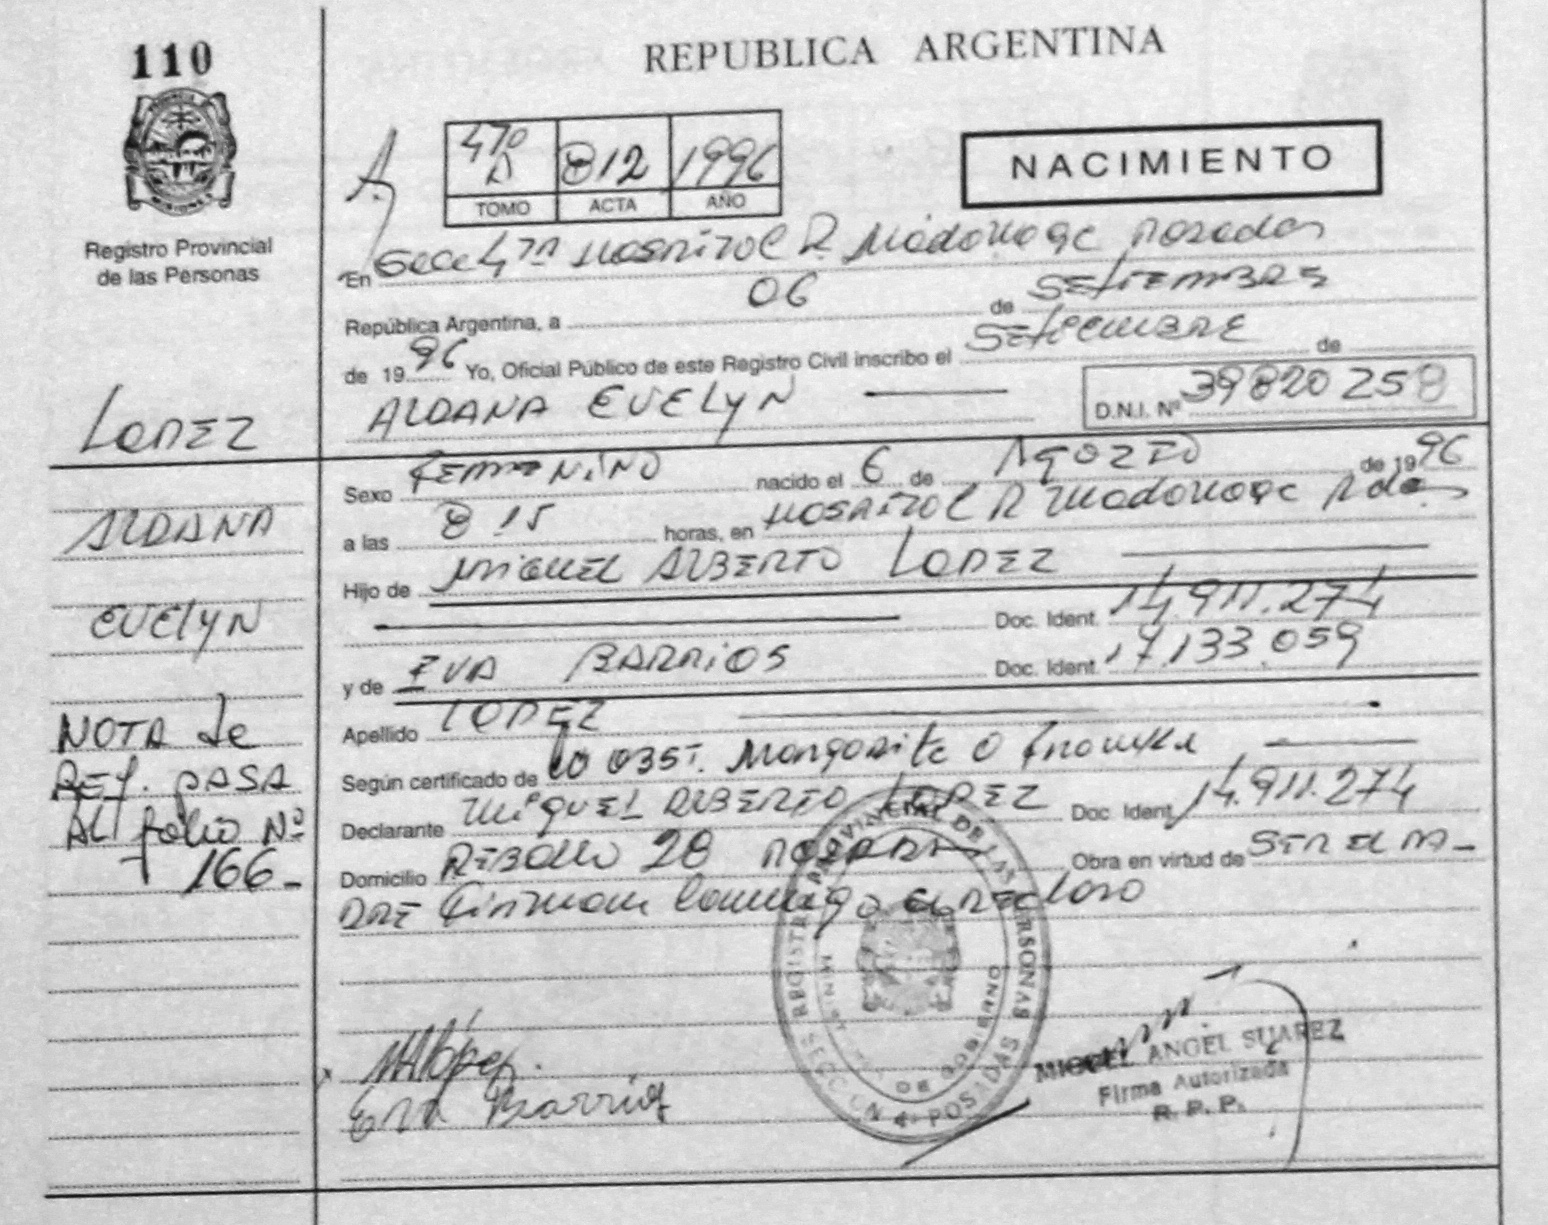 110
REPUBLICA ARGENTINA
Registro Provincial
de las Personas
47º A 812 1996
TOMO ACTA AÑO
NACIMIENTO
En Secc 4ta Hospital R. Madariaga Posadas
República Argentina, a 06 de SETIEMBRE
de 1996 Yo, Oficial Público de este Registro Civil inscribo el SETIEMBRE de
ALDANA EVELYN
D.N.I. Nº 39820258
LOPEZ
ALDANA
EVELYN
NOTA de
REF. PASA
AL folio Nº
166-
Sexo FEMENINO nacido el 6 de AGOZTO de 1996
a las 8 15 horas, en HOSPITAL R Madariaga Pdas
Hijo de MIGUEL ALBERTO LOPEZ
Doc. Ident. 14.911.274
y de EVA BARRIOS Doc. Ident. 17.133.059
Apellido LOPEZ
Según certificado de OBST. Margarita
Declarante MIGUEL ALBERTO LOPEZ Doc. Ident. 14.911.274
Domicilio 28 POSADAS Obra en virtud de SER EL PA-
DRE
REGISTRO PROVINCIAL DE LAS PERSONAS
MINISTERIO DE GOBIERNO
SECCION 4ª POSADAS
MALópez.
Eva Barrios
MIGUEL ANGEL SUAREZ
Firma Autorizada
R. P. P.